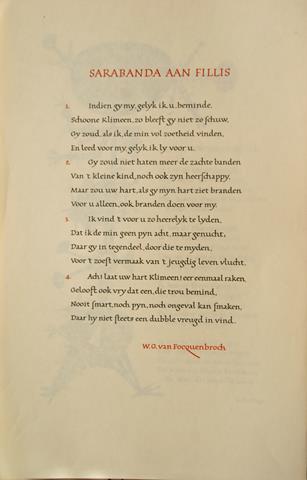 SARABANDA AAN FILLIS
1. Indien gy my, gelyk ik u, beminde,
Schoone Klimeen, zo bleeft gy niet zo schuw,
Gy zoud, als ik, de min vol zoetheid vinden,
En leed voor my, gelyk ik ly voor u.
2. Gy zoud niet haten meer de zachte banden
Van 't kleine kind, noch ook zyn heerschappy,
Maar zou uw hart, als gy myn hart ziet branden
Voor u alleen, ook branden doen voor my.
3. Ik vind 't voor u zo heerelyk te lyden,
Dat ik de min geen pyn acht, maar genucht,
Daar gy in tegendeel, door die te myden,
Voor 't zoest vermaak van 't jeugdig leven vlucht.
4. Ach! laat uw hart Klimeen! eer eenmaal raken,
Gelooft ook vry dat een, die trou bemind,
Nooit smart, noch pyn, noch ongeval kan smaken,
Daar hy niet steets een dubble vreugd in vind.
W.G. van Focquenbroch